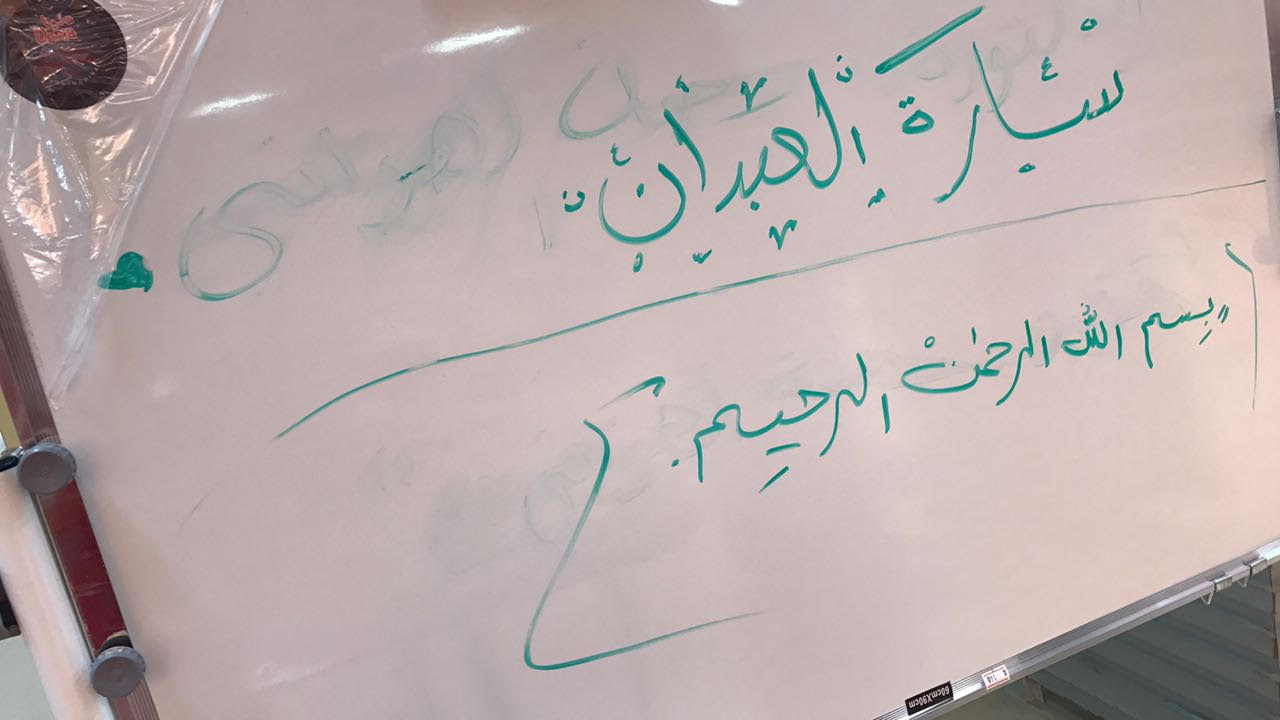 سارة العبدان
"بِسم الله الرحمٰن الرحيِم.
60cmX90cm